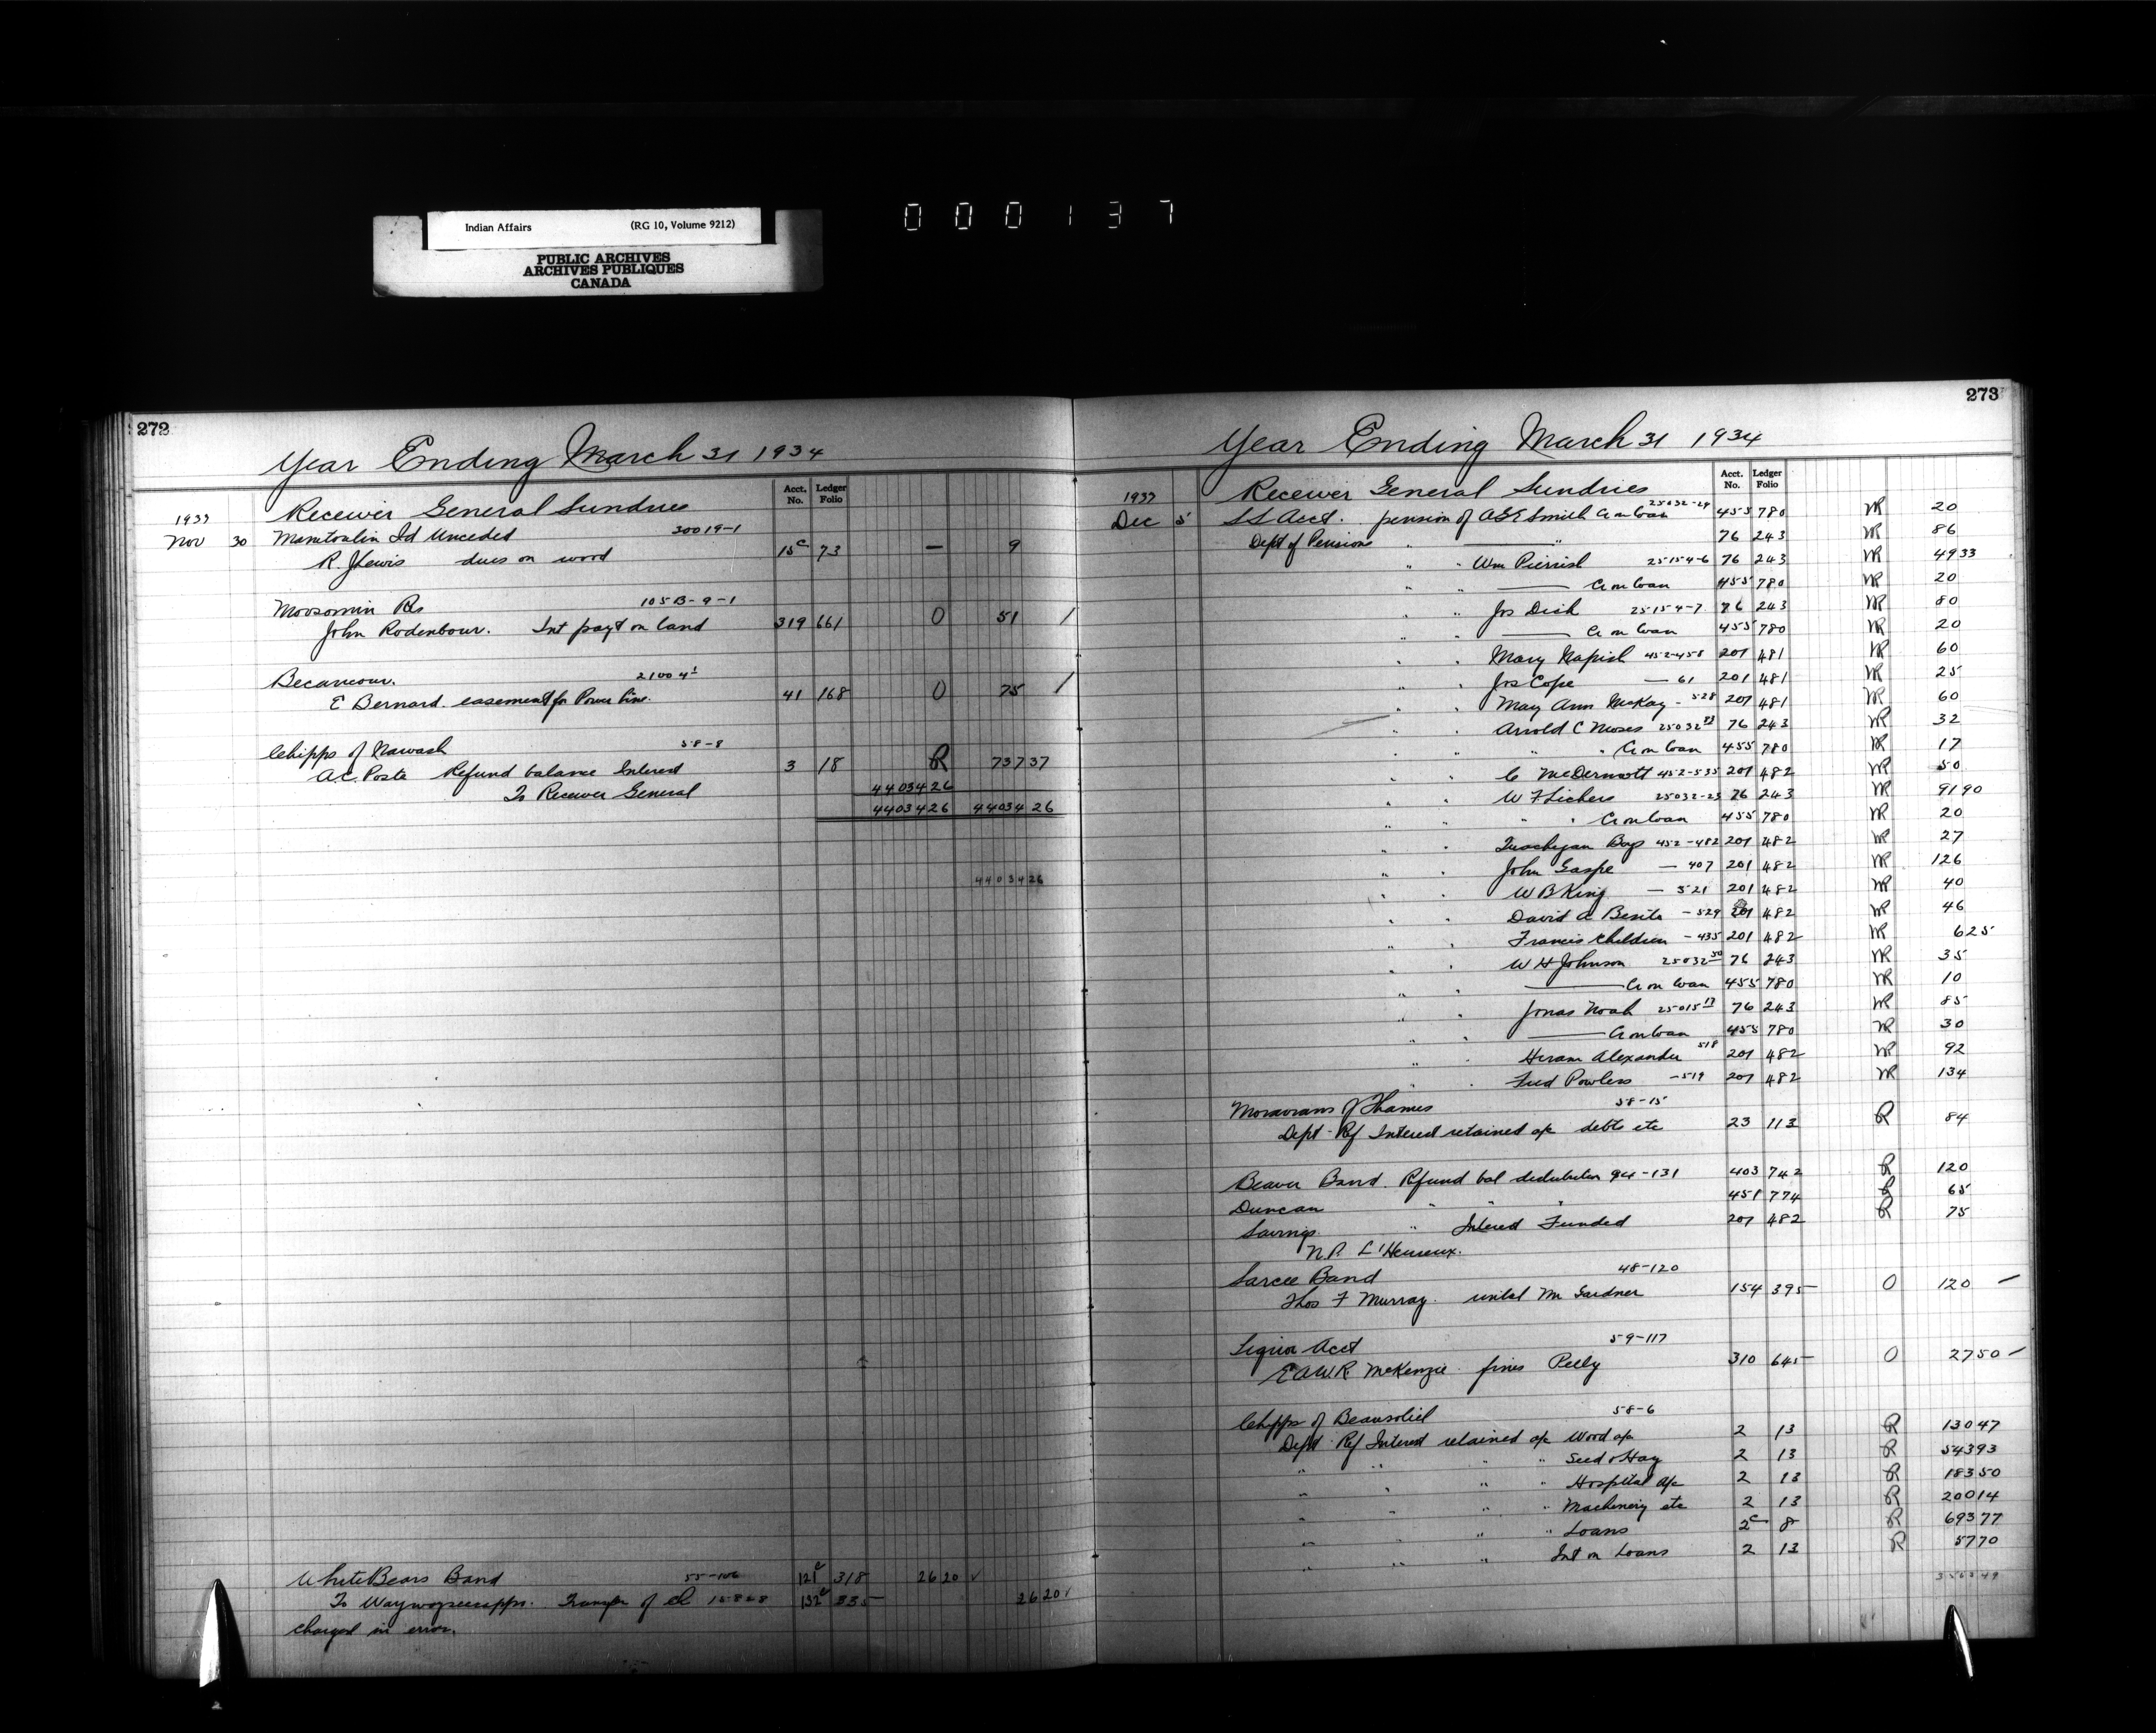 Indian Affairs (RG 10, Volume 9212)
PUBLIC ARCHIVES
ARCHIVES PUBLIQUES
CANADA
000137
272
Year Ending March 31 1934
Acct. No. Ledger Folio
1933 Receiver General Sundries
Nov 30 Manitoulin Id Unceded 30019-1
R. J Lewis dues on wood 15c 73 — 9
Moosomin Res 105B-9-1
John Rodenbour. Int payt on land 319 661 O 51 /
Becancour. 21004-1
E Bernard. easement for Power line. 41 168 O 75 /
Chipps of Nawash 58-8
A.C. Poste Refund balance Interest 3 18 R 73737
To Receiver General 4403426
4403426 4403426
4403426
White Bears Band 55-106 121c 318 2620 ✓
To Transfer of 132c 335 2620 ✓
charged in error.
273
Year Ending March 31 1934
Acct. No. Ledger Folio
1933 Receiver General Sundries
Dec 5 SS Acct. pension of A G E Smith C on loan 25032-29 455 780 NR 20
Dept of Pensions " — " 76 243 NR 86
" " Wm 25154-6 76 243 NR 4933
" " — C on loan 455 780 NR 20
" " Jos Dick 25154-7 76 243 NR 80
" " — C on loan 455 780 NR 20
" " Mary 452-458 201 481 NR 60
" " Jos Cope — 61 201 481 NR 25
" " Mary Ann McKay - 528 201 481 NR 60
" " Arnold C Moses 25032 76 243 NR 32
" " " " C on loan 455 780 NR 17
" " C McDermott 452-535 201 482 NR 50
" " W F Lickers 25032-23 76 243 NR 9190
" " " " C on loan 455 780 NR 20
" " Boys 452-482 201 482 NR 27
" " John Gaspe — 407 201 482 NR 126
" " W B King — 521 201 482 NR 40
" " David A - 529 201 482 NR 46
" " Francis children - 435 201 482 NR 625
" " W H Johnson 25032-30 76 243 NR 35
" " — C on loan 455 780 NR 10
" " Jonas Noah 25015-13 76 243 NR 85
" " — C on loan 455 780 NR 30
" " Hiram Alexander 518 201 482 NR 92
" " Fred Powless - 519 201 482 NR 134
Moravians of Thames 58-15
Dept - Rf Interest retained a/c debts etc 23 113 R 84
Beaver Band. Refund bal distribution 94-131 403 742 R 120
Duncan " " " 451 774 R 65
Savings " Interest Funded 201 482 R 75
N.P. L'Heureux.
Sarcee Band 48-120
Thos F Murray. rental Mr Gardner 154 395 O 120 —
Liquor Acct 59-117
E A W R McKenzie fines Pelly 310 645 O 2750 —
Chipps of Beausoliel 58-6
Dept - Rf Interest retained a/c Wood a/c 2 13 R 13047
" " " " Seed & Hay 2 13 R 54393
" " " " Hospital a/c 2 13 R 18350
" " " " Machinery etc 2 13 R 20014
" " " " Loans 2c 8 R 69377
" " " " Int on Loans 2 13 R 5770